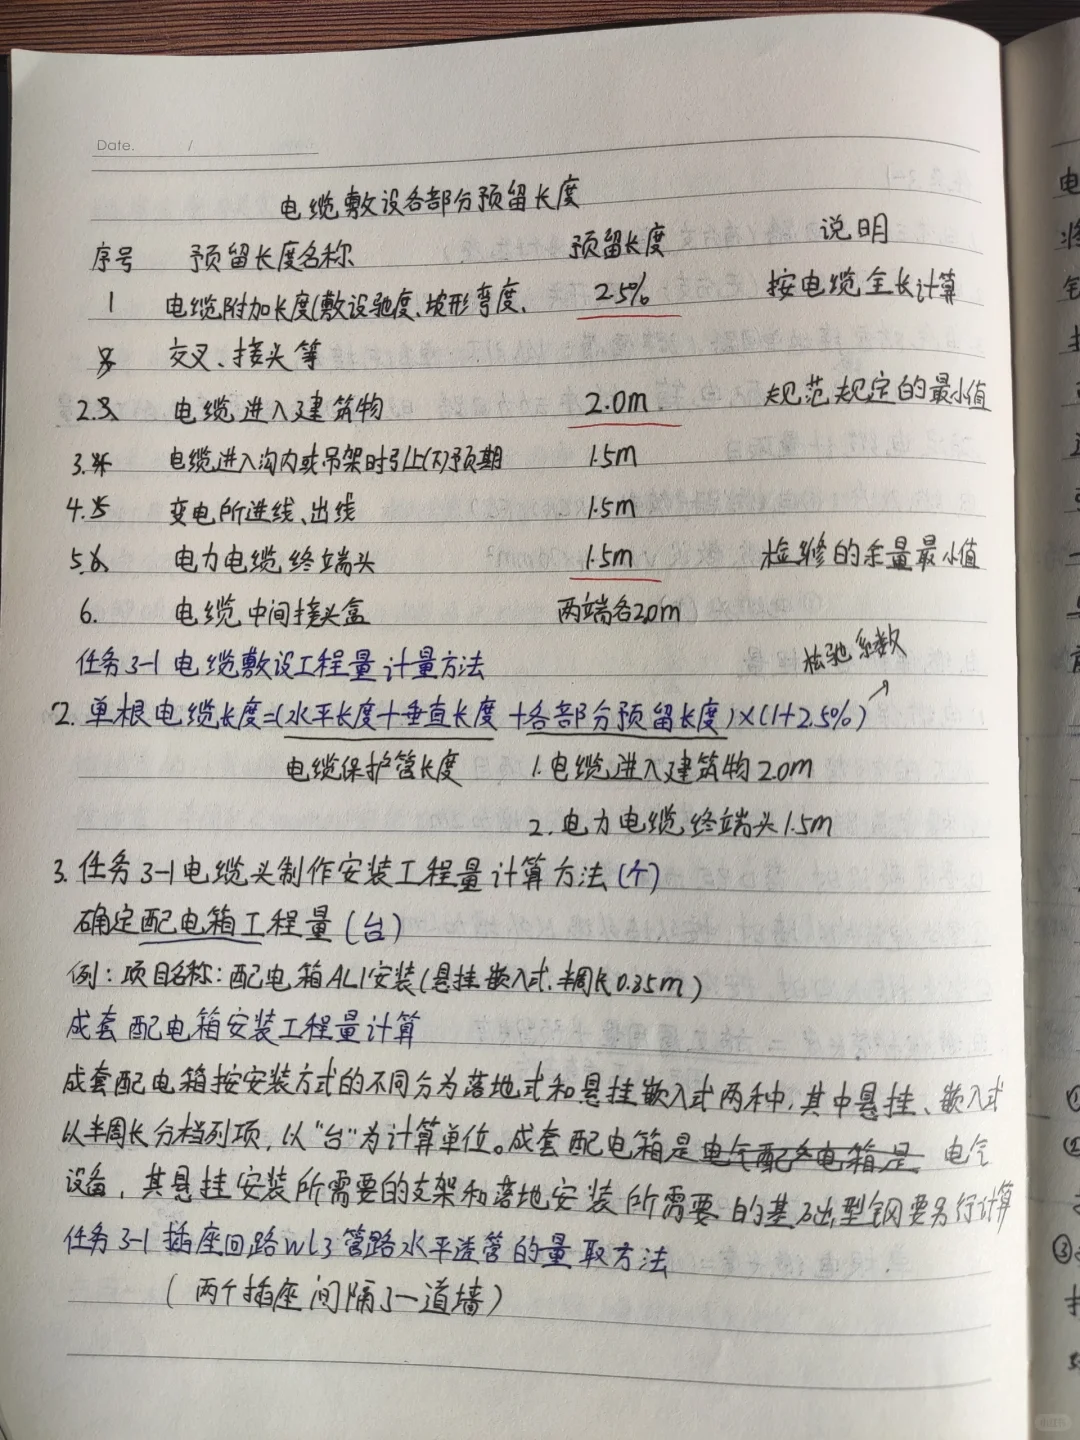 Date. /
电缆敷设各部分预留长度
序号 预留长度名称 预留长度 说明
1 电缆附加长度(敷设驰度、坡形弯度、 2.5% 按电缆全长计算
交叉、接头等
2. 电缆进入建筑物 2.0m 规范规定的最小值
3. 电缆进入沟内或吊架时引上(下)预期 1.5m
4. 变电所进线、出线 1.5m
5. 电力电缆终端头 1.5m 检修的余量最小值
6. 电缆中间接头盒 两端各2.0m
任务3-1 电缆敷设工程量计量方法
松驰系数
2. 单根电缆长度=(水平长度+垂直长度+各部分预留长度)×(1+2.5%)
电缆保护管长度 1.电缆进入建筑物2.0m
2.电力电缆终端头1.5m
3. 任务3-1电缆头制作安装工程量计算方法(个)
确定配电箱工程量(台)
例:项目名称:配电箱AL1安装(悬挂嵌入式.半周长0.35m)
成套配电箱安装工程量计算
成套配电箱按安装方式的不同分为落地式和悬挂嵌入式两种,其中悬挂、嵌入式
以半周长分档列项,以“台”为计算单位。成套配电箱是电气配电箱是 电气
设备,其悬挂安装所需要的支架和落地安装所需要的基础型钢要另行计算
任务3-1插座回路wl3管路水平进管的量取方法
(两个插座间隔了一道墙)
①
②
③
小红书